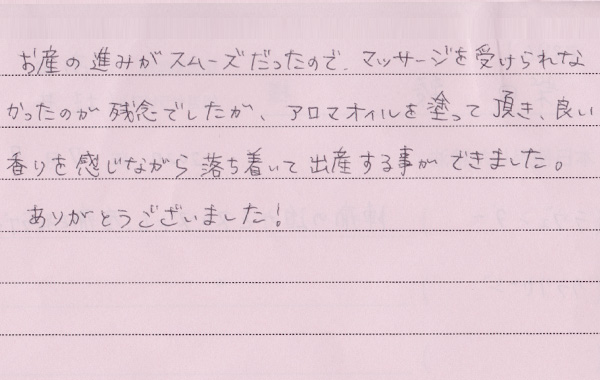 お産の進みがスムーズだったので、マッサージを受けられな
かったのが残念でしたが、アロマオイルを塗って頂き、良い
香りを感じながら落ち着いて出産する事ができました。
ありがとうございました！